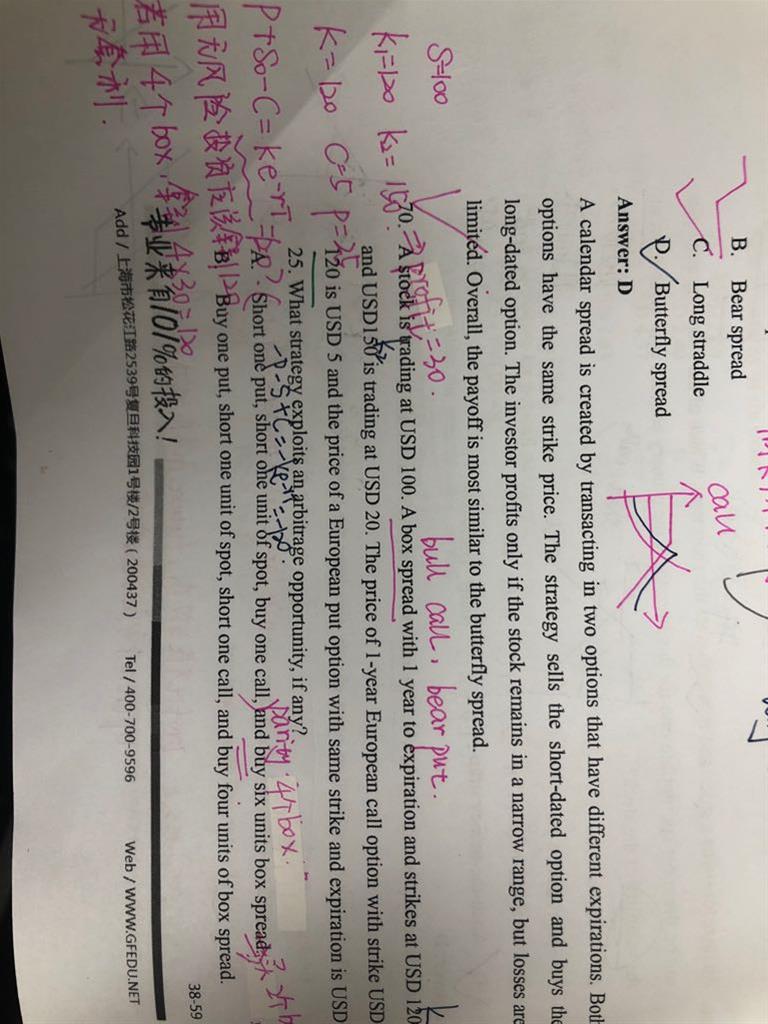 B. Bear spread
C. Long straddle
D. Butterfly spread
call
Answer: D
A calendar spread is created by transacting in two options that have different expirations. Both
options have the same strike price. The strategy sells the short-dated option and buys the
long-dated option. The investor profits only if the stock remains in a narrow range, but losses are
limited. Overall, the payoff is most similar to the butterfly spread.
S=100
bull call, bear put.
K₁=120 K₂=150 → profit=30.
70. A stock is trading at USD 100. A box spread with 1 year to expiration and strikes at USD 120
and USD150 is trading at USD 20. The price of 1-year European call option with strike USD
K=120 C=5 P=25
120 is USD 5 and the price of a European put option with same strike and expiration is USD
25. What strategy exploits an arbitrage opportunity, if any?
-P-S+C=-Ke^-rT=-120.
parity. 4个box.
P+S₀-C=Ke^-rT=120?
A. Short one put, short one unit of spot, buy one call, and buy six units box spread.
用无风险投资应该拿到120
B. Buy one put, short one unit of spot, short one call, and buy four units of box spread.
若用4个box, 拿到4×30=120
方套利.
38-59
事业来有101%的投入!
Add / 上海市松花江路2539号复旦科技园1号楼/2号楼 ( 200437 ) Tel / 400-700-9596 Web / WWW.GFEDU.NET